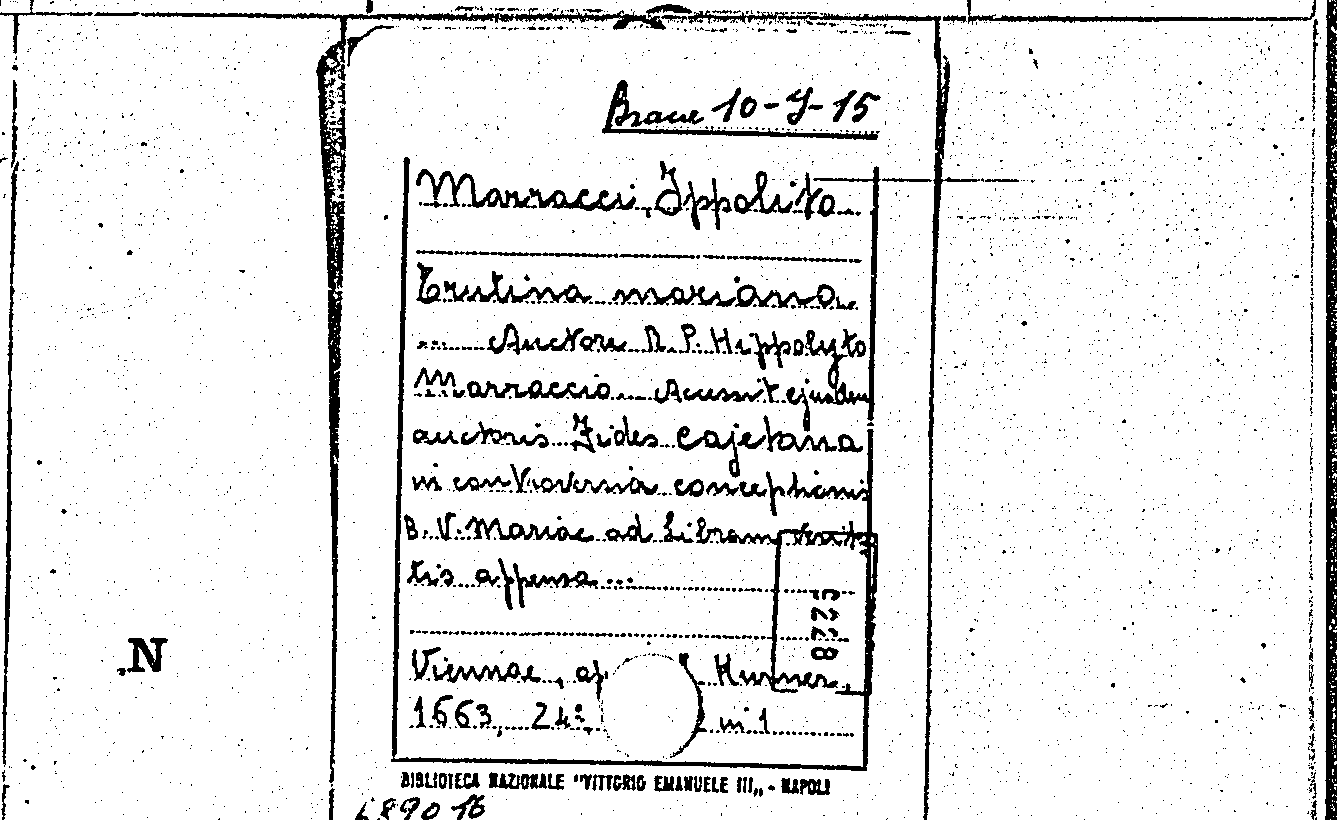 Brane 10-J-15
Marracci, Ippolito
Trutina mariana
... Auctore R. P. Hippolyto
Marraccio... Acessit ejusdem
auctoris Fides Cajetana
in controversia conceptionis
B. V. Mariae ad Libram Verita
tis appensa...
Viennae, ap Kurner,
1663, 24º, in 1
5228
N
BIBLIOTECA NAZIONALE "VITTORIO EMANUELE III„ - NAPOLI
489016